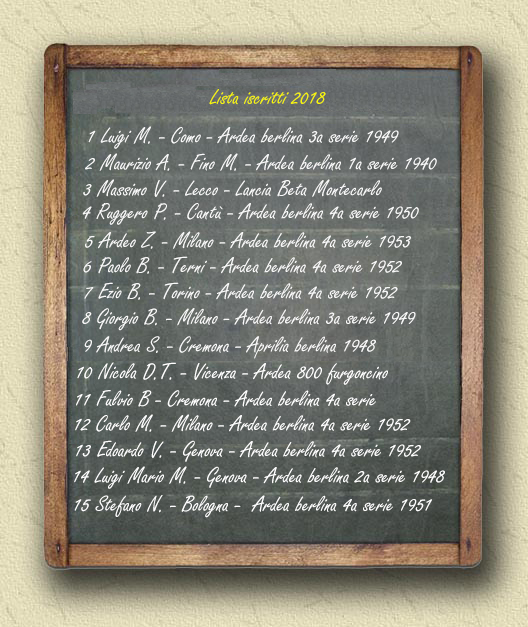 Lista iscritti 2018
1 Luigi M. - Como - Ardea berlina 3a serie 1949
2 Maurizio A. - Fino M. - Ardea berlina 1a serie 1940
3 Massimo V. - Lecco - Lancia Beta Montecarlo
4 Ruggero P. - Cantù - Ardea berlina 4a serie 1950
5 Ardeo Z. - Milano - Ardea berlina 4a serie 1953
6 Paolo B. - Terni - Ardea berlina 4a serie 1952
7 Ezio B. - Torino - Ardea berlina 4a serie 1952
8 Giorgio B. - Milano - Ardea berlina 3a serie 1949
9 Andrea S. - Cremona - Aprilia berlina 1948
10 Nicola D.T. - Vicenza - Ardea 800 furgoncino
11 Fulvio B - Cremona - Ardea berlina 4a serie
12 Carlo M. - Milano - Ardea berlina 4a serie 1952
13 Edoardo V. - Genova - Ardea berlina 4a serie 1952
14 Luigi Mario M. - Genova - Ardea berlina 2a serie 1948
15 Stefano N. - Bologna - Ardea berlina 4a serie 1951